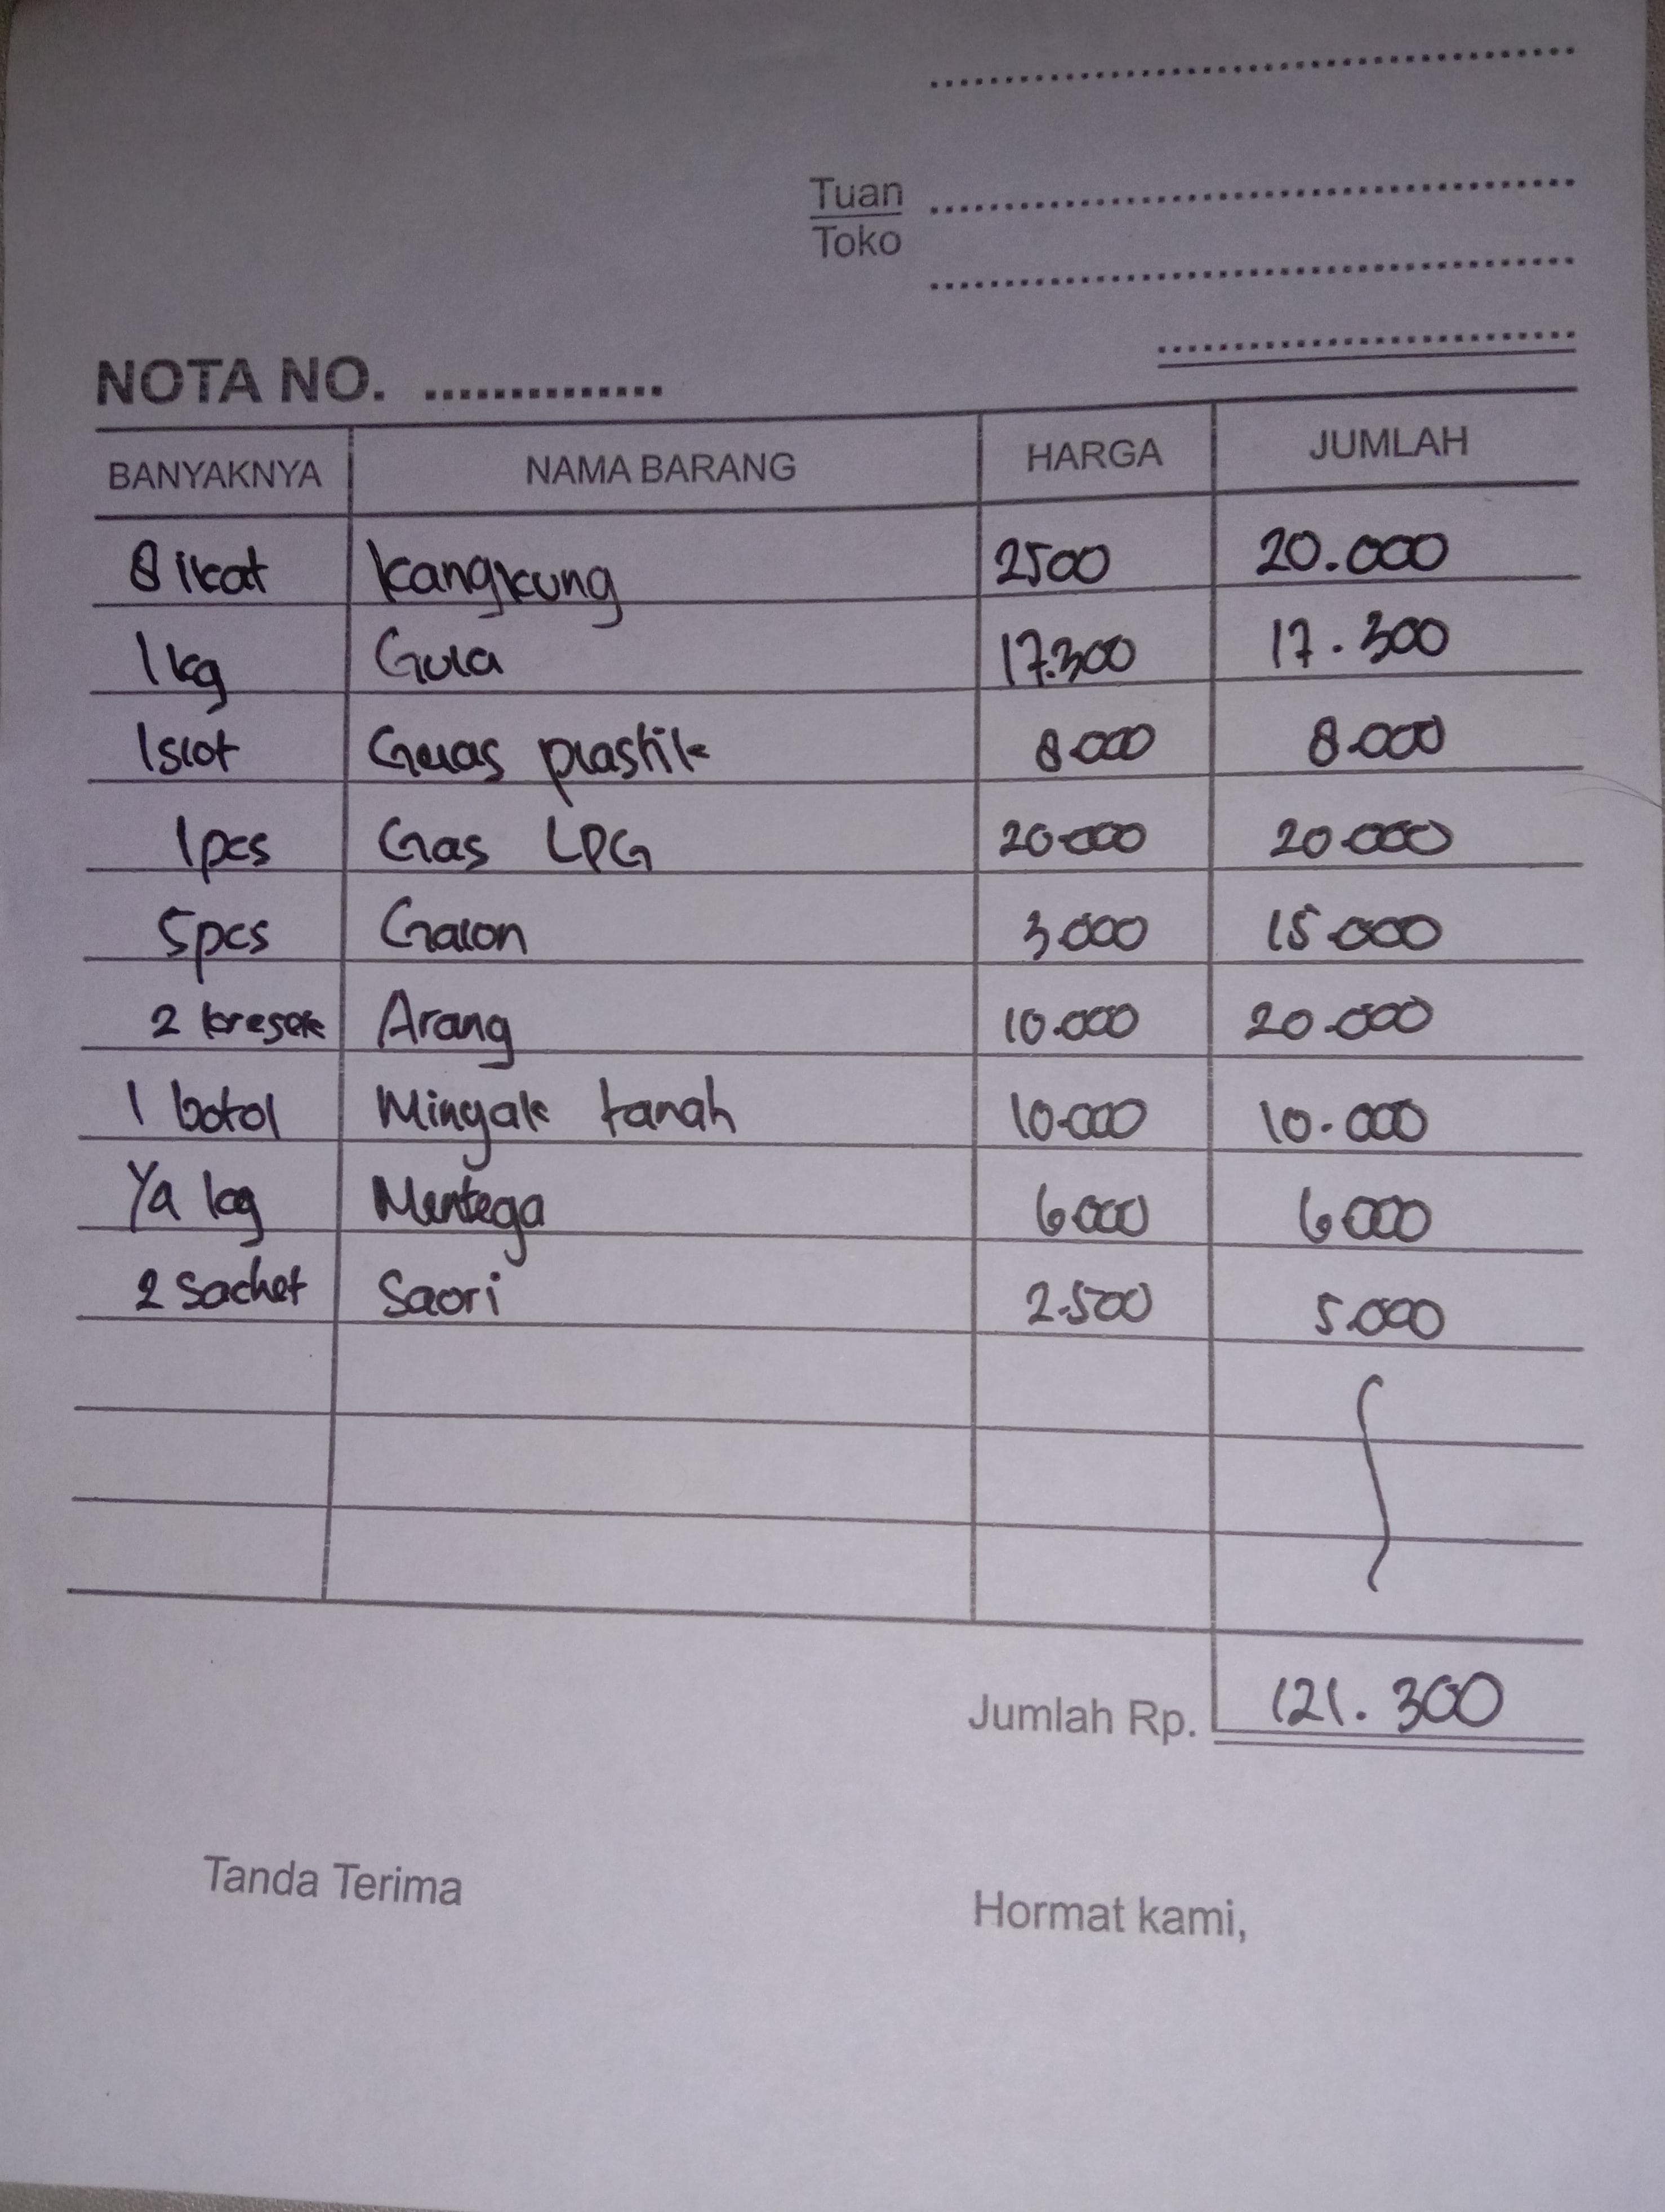 Tuan
Toko
NOTA NO. ..............
BANYAKNYA NAMA BARANG HARGA JUMLAH
8 ikat Kangkung 2500 20.000
1 kg Gula 17.300 17.300
1 slot Gelas plastik 8.000 8.000
1 pcs Gas LPG 20.000 20.000
5 pcs Galon 3.000 15.000
2 kresek Arang 10.000 20.000
1 botol Minyak tanah 10.000 10.000
1/4 kg Mentega 6.000 6.000
2 Sachet Saori 2.500 5.000
Jumlah Rp. 121.300
Tanda Terima Hormat kami,